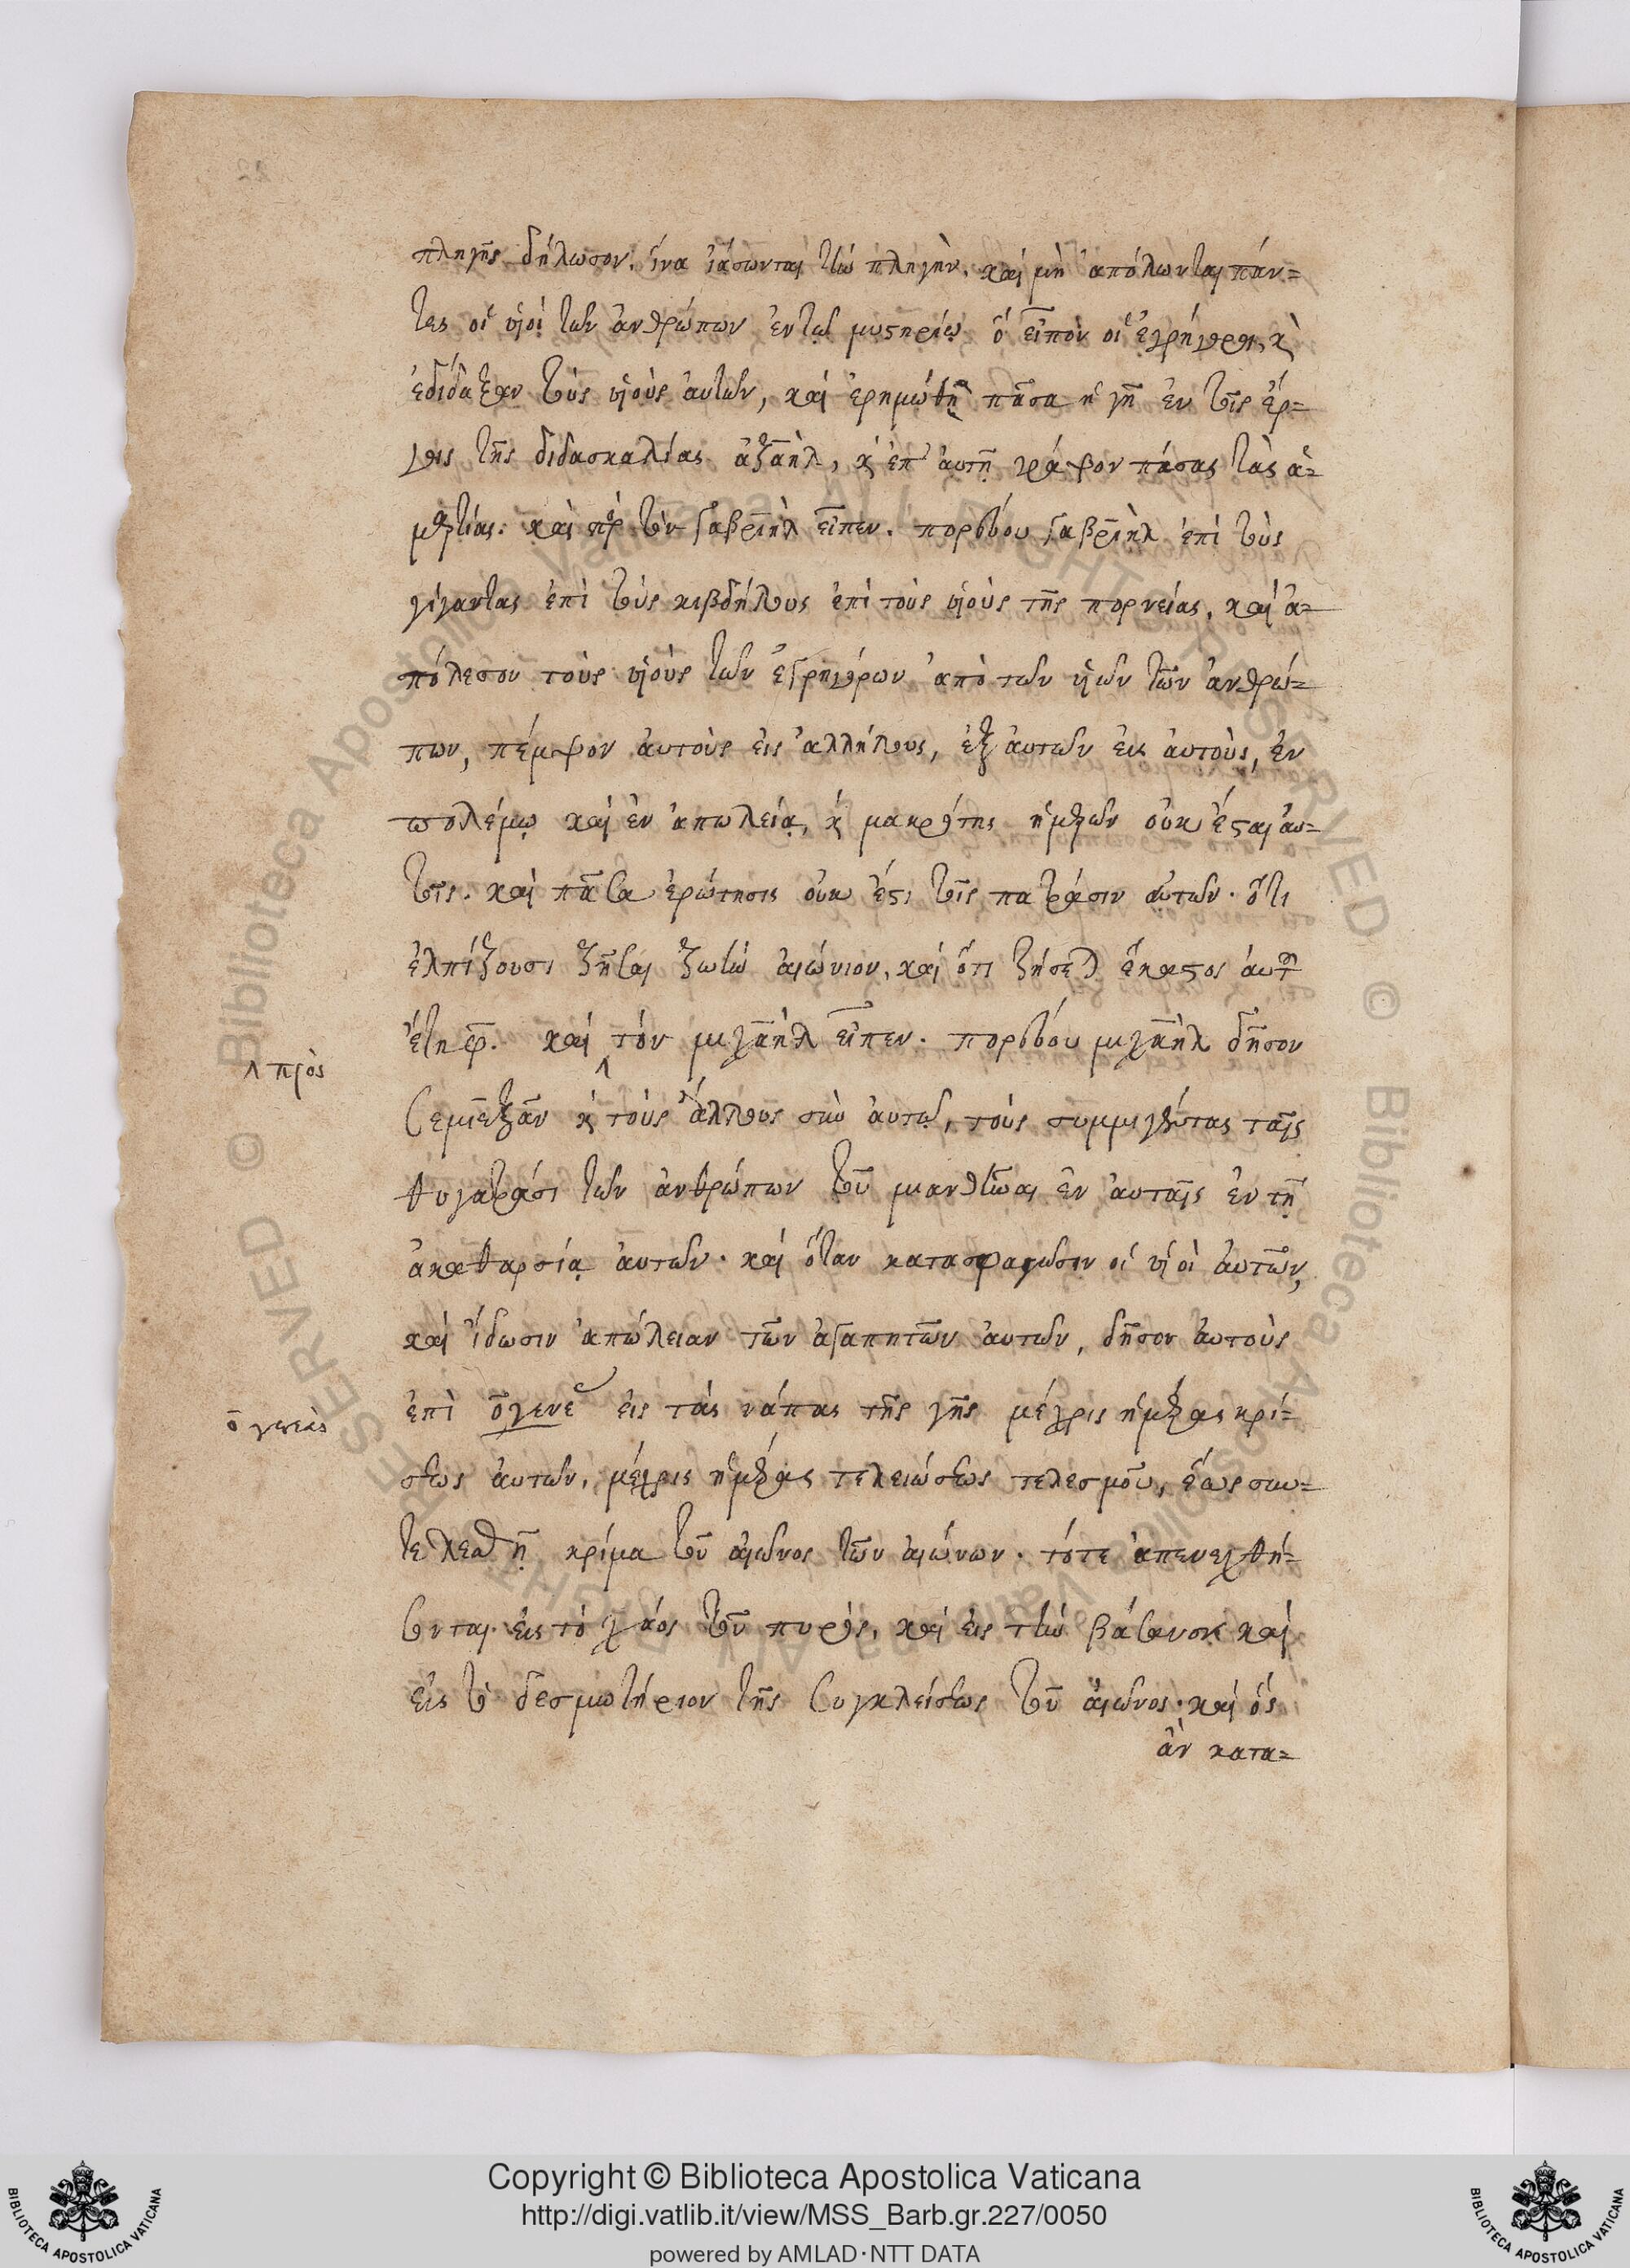 πληγῆς δήλωσον. ἵνα ἰάσωνται τὴν πληγὴν. καὶ μὴ ἀπόλωνται πάν=
τες οἱ υἱοὶ τῶν ἀνθρώπων ἐν τῷ μυστηρίῳ ὃ εἶπον οἱ ἐγρήγοροι, κὶ
ἐδίδαξαν τοὺς υἱοὺς αὐτῶν, καὶ ἐρημώθη πᾶσα ἡ γῆ ἐν τοῖς ἔρ=
γοις τῆς διδασκαλίας ἀζαὴλ, κὶ ἐπ' αὐτῇ γράψον πάσας τὰς ἁ=
μαρτίας: καὶ πρ τὸν γαβριὴλ εἶπεν. πορεύου γαβριὴλ ἐπὶ τοὺς
γίγαντας ἐπὶ τοὺς κιβδήλους ἐπὶ τοὺς υἱοὺς τῆς πορνείας, καὶ ἀ=
πόλεσον τοὺς υἱοὺς τῶν ἐγρηγόρων ἀπὸ τῶν υἱῶν τῶν ἀνθρώ=
πων, πέμψον αὐτοὺς εἰς ἀλλήλους, ἐξ αὐτῶν εἰς αὐτοὺς, ἐν
πολέμῳ καὶ ἐν ἀπωλείᾳ, κὶ μακρότης ἡμερῶν οὐκ ἔσται αὐ=
τοῖς. καὶ πᾶσα ἐρώτησις οὐκ ἔστι τοῖς πατράσιν αὐτῶν. ὅτι
ἐλπίζουσι ζῆσαι ζωὴν αἰώνιον, καὶ ὅτι ζήσεται ἕκαστος αὐτῶν
ἔτη φ. καὶ ‸ τὸν μιχαὴλ εἶπεν. πορεύου μιχαὴλ δῆσον
‸ πρὸς
σεμιεξᾶν κὶ τοὺς ἄλλους σὺν αὐτῷ, τοὺς συμμιγέντας ταῖς
θυγατράσι τῶν ἀνθρώπων τοῦ μιανθῆναι ἐν αὐταῖς ἐν τῇ
ἀκαθαρσίᾳ αὐτῶν. καὶ ὅταν κατασφαγῶσιν οἱ υἱοὶ αὐτῶν,
καὶ ἴδωσιν ἀπώλειαν τῶν ἀγαπητῶν αὐτῶν, δῆσον αὐτοὺς
ἐπὶ ο̄ γενε εἰς τὰς νάπας τῆς γῆς μέχρις ἡμέρας κρί=
ο̄ γενεὰς
σεως αὐτῶν, μέχρις ἡμέρας τελειώσεως τελεσμοῦ, ἕως συν=
τελεσθῇ κρίμα τοῦ αἰῶνος τῶν αἰώνων. τότε ἀπενεχθή=
σονται εἰς τὸ χάος τοῦ πυρὸς, καὶ εἰς τὴν βάσανον καὶ
εἰς τὸ δεσμωτήριον τῆς συγκλείσεως τοῦ αἰῶνος. καὶ ὃς
ἂν κατα=
Copyright © Biblioteca Apostolica Vaticana
http://digi.vatlib.it/view/MSS_Barb.gr.227/0050
powered by AMLAD·NTT DATA
BIBLIOTECA APOSTOLICA VATICANA
BIBLIOTECA APOSTOLICA VATICANA